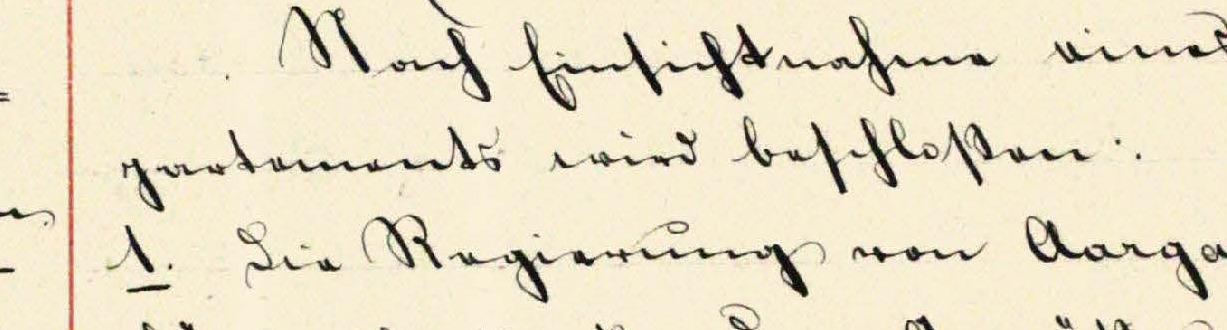 Nach Einsichtnahme eines
partements wird beschloßen:
1. Die Regierung von Aarga